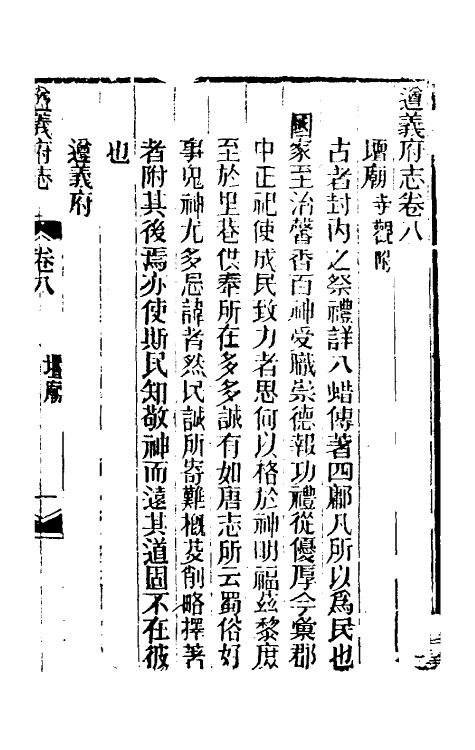 遵義府志卷八
壇廟寺觀附
古者封內之祭禮詳八蜡傳著四鄘凡所以爲民也
國家至治馨香百神受職崇德報功禮從優厚今彙郡
中正祀使成民致力者思何以格於神明福茲黎庶
至於里巷供奉所在多多誠有如唐志所云蜀俗好
事鬼神尤多忌諱者然民誠所寄難槪芟削略擇著
者附其後焉亦使斯民知敬神而遠其道固不在彼
也
遵義府
遵義府志
卷八
壇廟
一